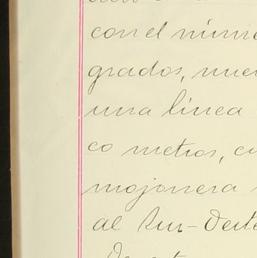 con el núme
grados, nue
una línea
co metros, cu
mojonera
al Sur-Oeste